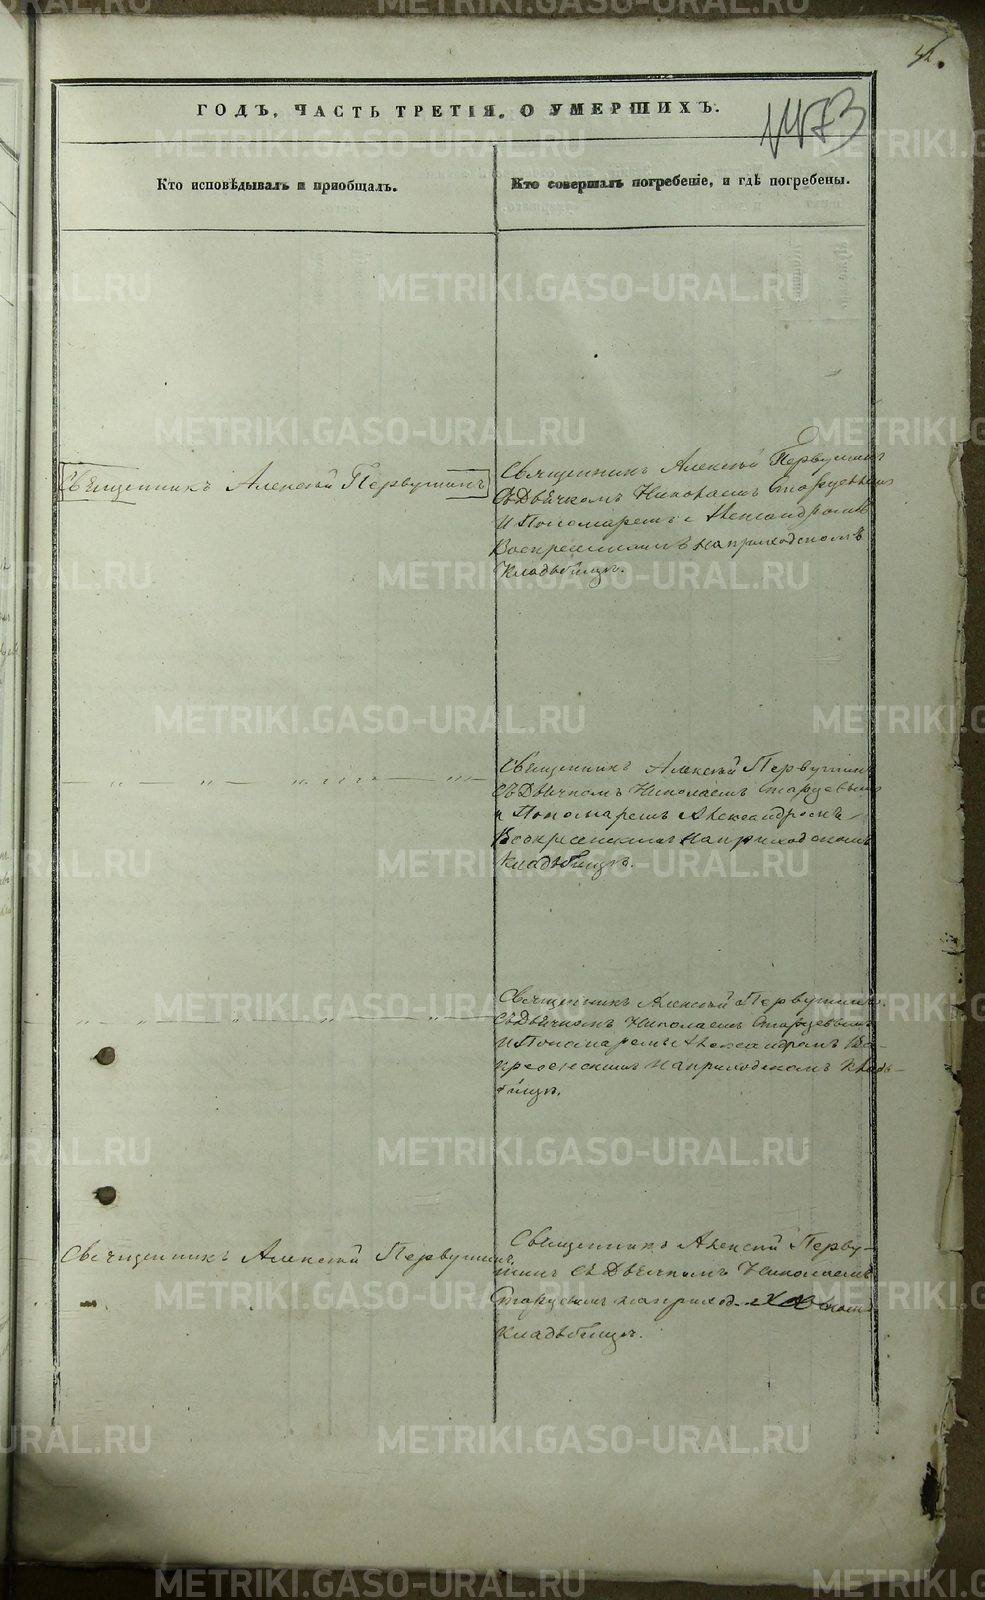 ГОДЪ, ЧАСТЬ ТРЕТІЯ, О УМЕРШИХЪ.
1473
Кто исповѣдывалъ и пріобщалъ.
Кто совершалъ погребеніе, и гдѣ погребены.
Священникъ Алексѣй Первушинъ
Священникъ Алексѣй Первушинъ
съ Дьячкомъ Николаемъ Старцевымъ
и Пономаремъ Александромъ
Воскресенскимъ на приходскомъ
кладьбищѣ.
Священникъ Алексѣй Первушинъ
съ Дьячкомъ Николаемъ Старцевымъ
и Пономаремъ Александромъ
Воскресенскимъ на приходскомъ
кладьбищѣ.
Священникъ Алексѣй Первушинъ
съ Дьячкомъ Николаемъ Старцевымъ
и Пономаремъ Александромъ Вос-
кресенскимъ на приходскомъ кладь-
бищѣ.
Священникъ Алексѣй Первушинъ
Священникъ Алексѣй Перву-
шинъ съ Дьячкомъ Николаемъ
Старцевымъ на приход
кладьбищѣ.
METRIKI.GASO-URAL.RU